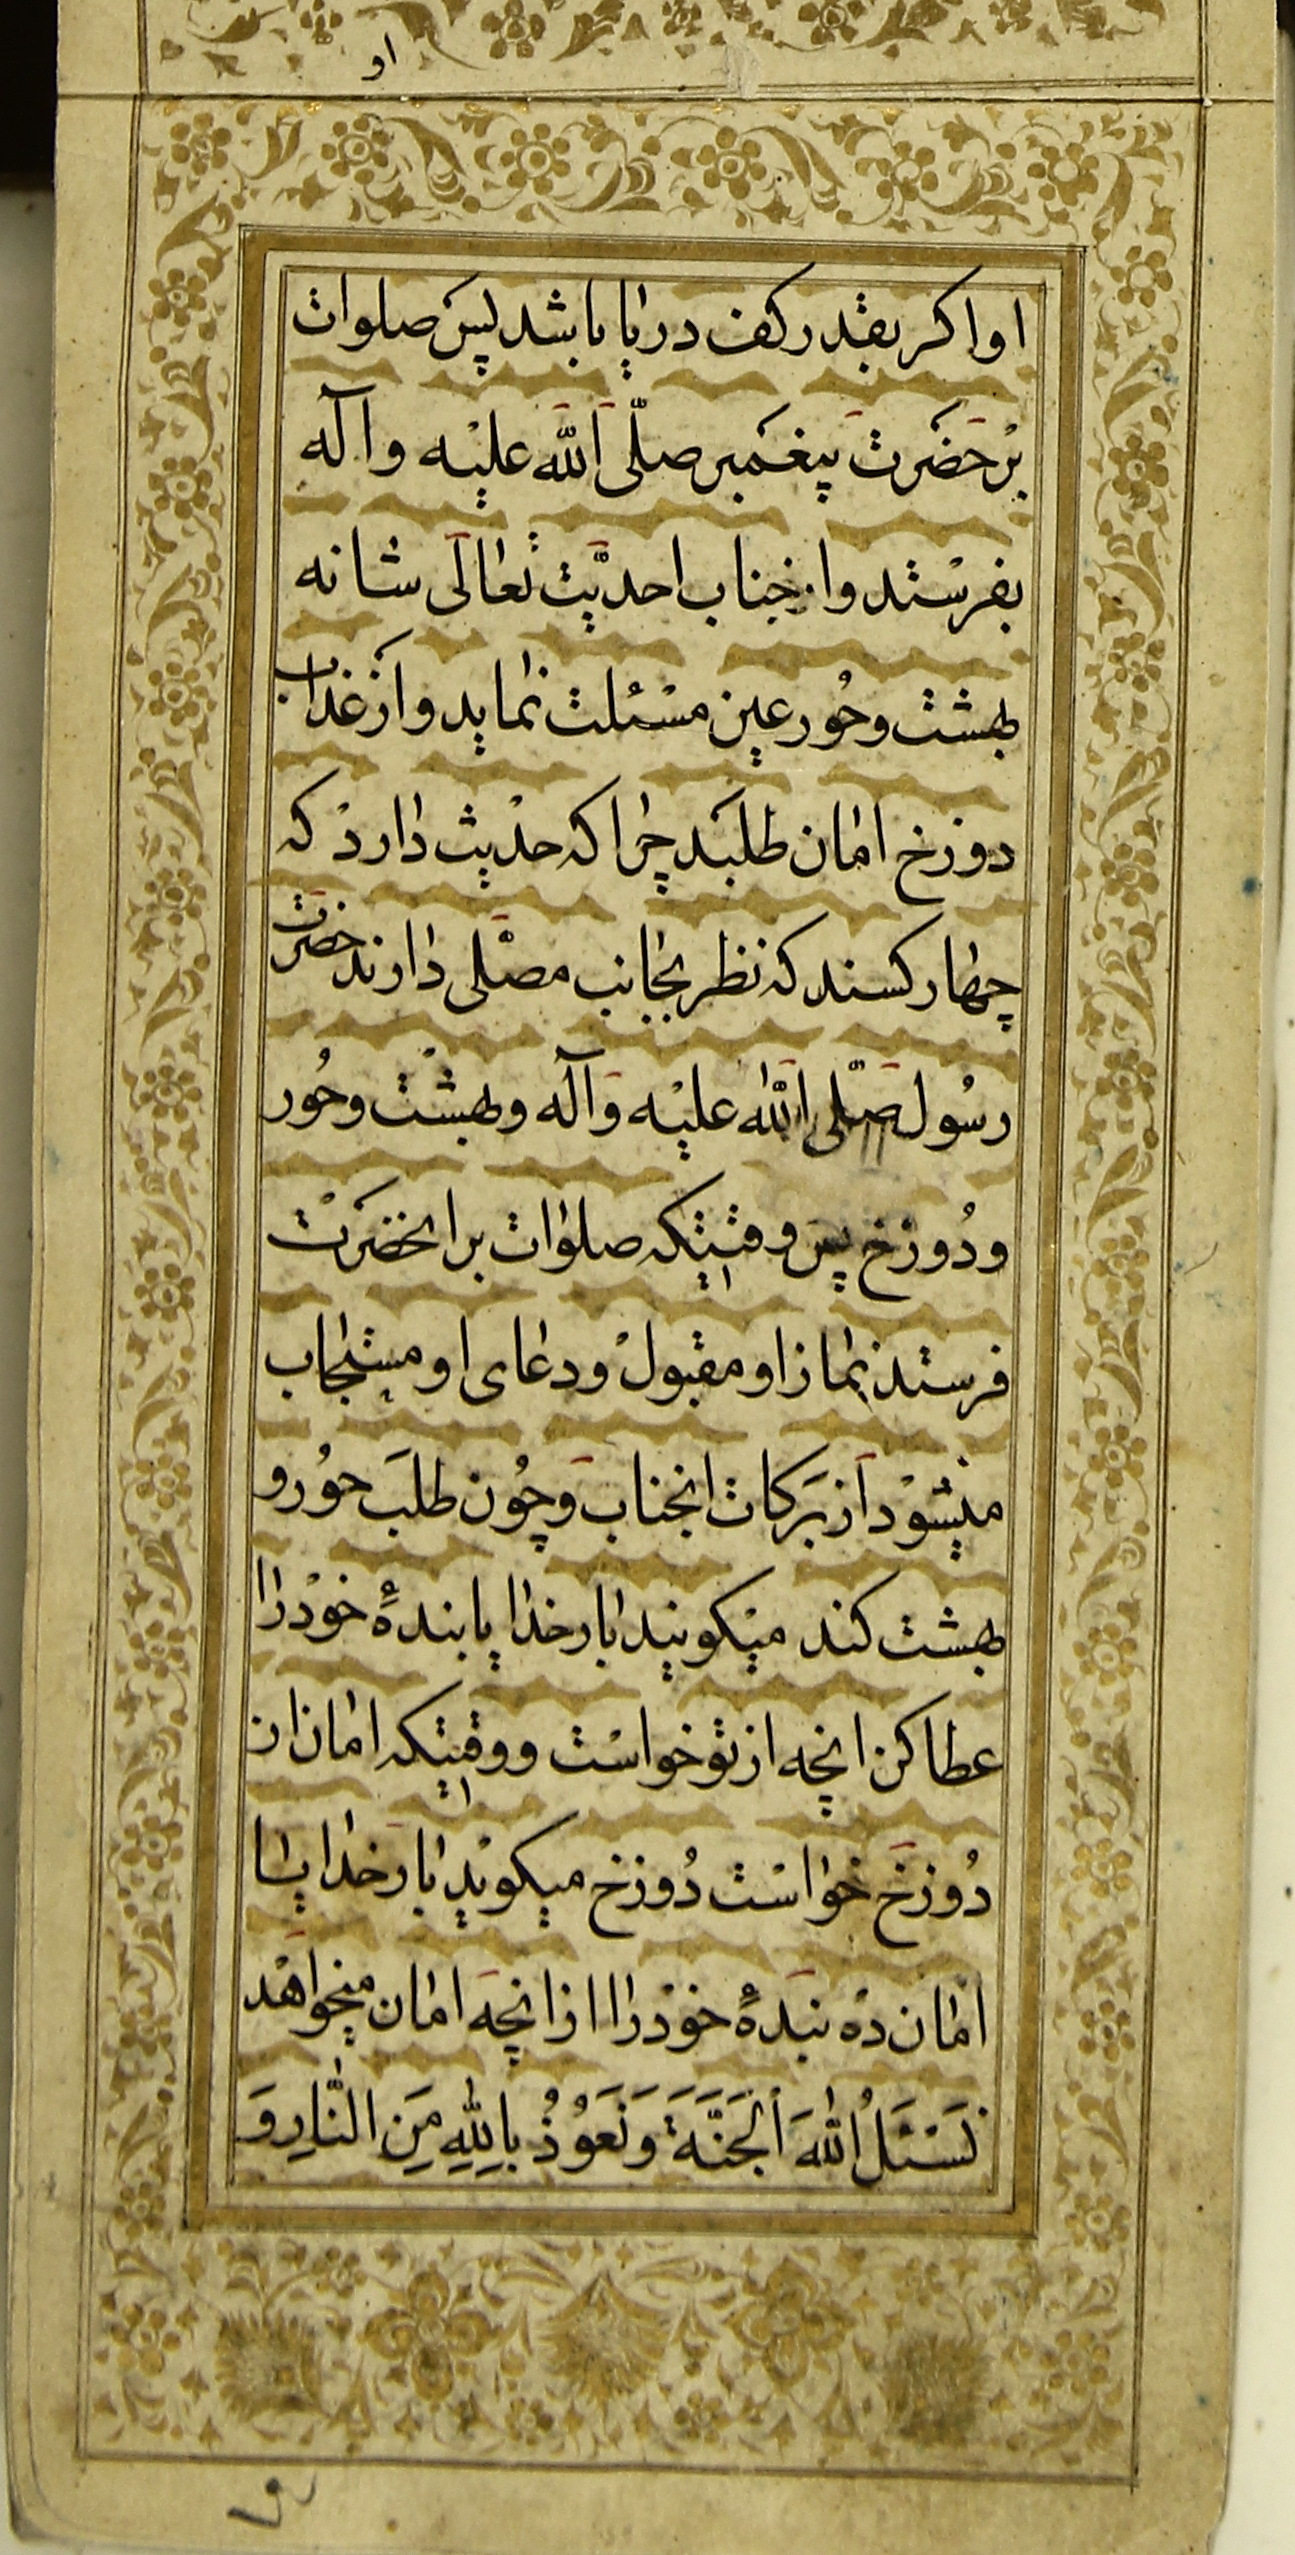 او
او اکر بقدر کف دریا باشد پس صلوات
بر حضرت پیغمبر صلّی الله علیه و آله
بفرستد و از جناب احدیّت تعالی شانه
بهشت و حُور عین مسئلت نماید و از عذاب
دوزخ امان طلبد چرا که حدیث دارد که
چهار کسند که نظر بجانب مصلّی دارند حضرت
رسُول صلّی الله علیه و آله و بهشت و حُور
و دُوزخ پس وقتیکه صلوات بر انحضرت
فرستد نماز او مقبول و دعای او مستجاب
میشود از برکات انجناب و چُون طلب حوُر و
بهشت کند میکویند بار خدایا بندهٔ خود را
عطا کن انچه از تو خواست و وقتیکه امان از
دُوزخ خواست دُوزخ میکوید بار خدایا
امان ده بندهٔ خود را از انچه امان میخواهد
نَسْئَلُ اللهَ الْجَنَّةَ وَ نَعُوُذُ بِاللهِ مِنَ النّارِ وَ